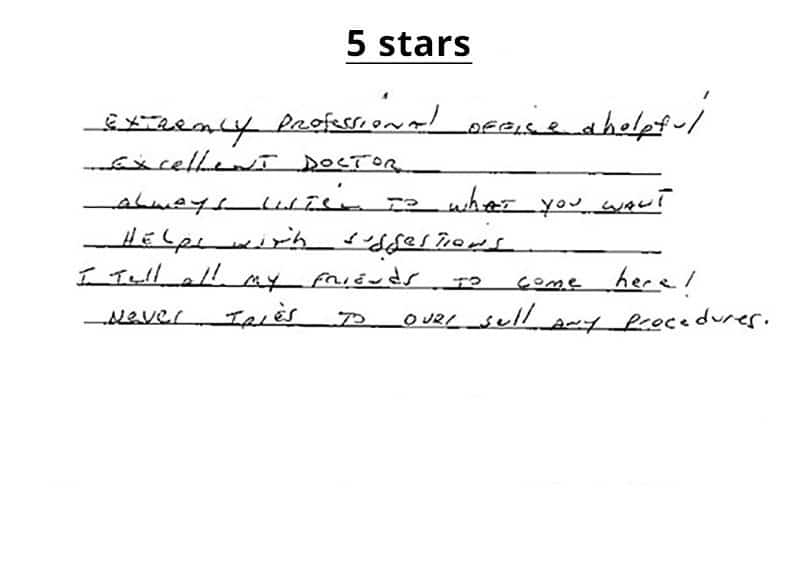 5 stars
Extremly Professional office & helpful
Excellent Doctor
always listen to what you want
Helps with suggestions
I tell all my friends to come here!
Never tries to over sell any procedures.